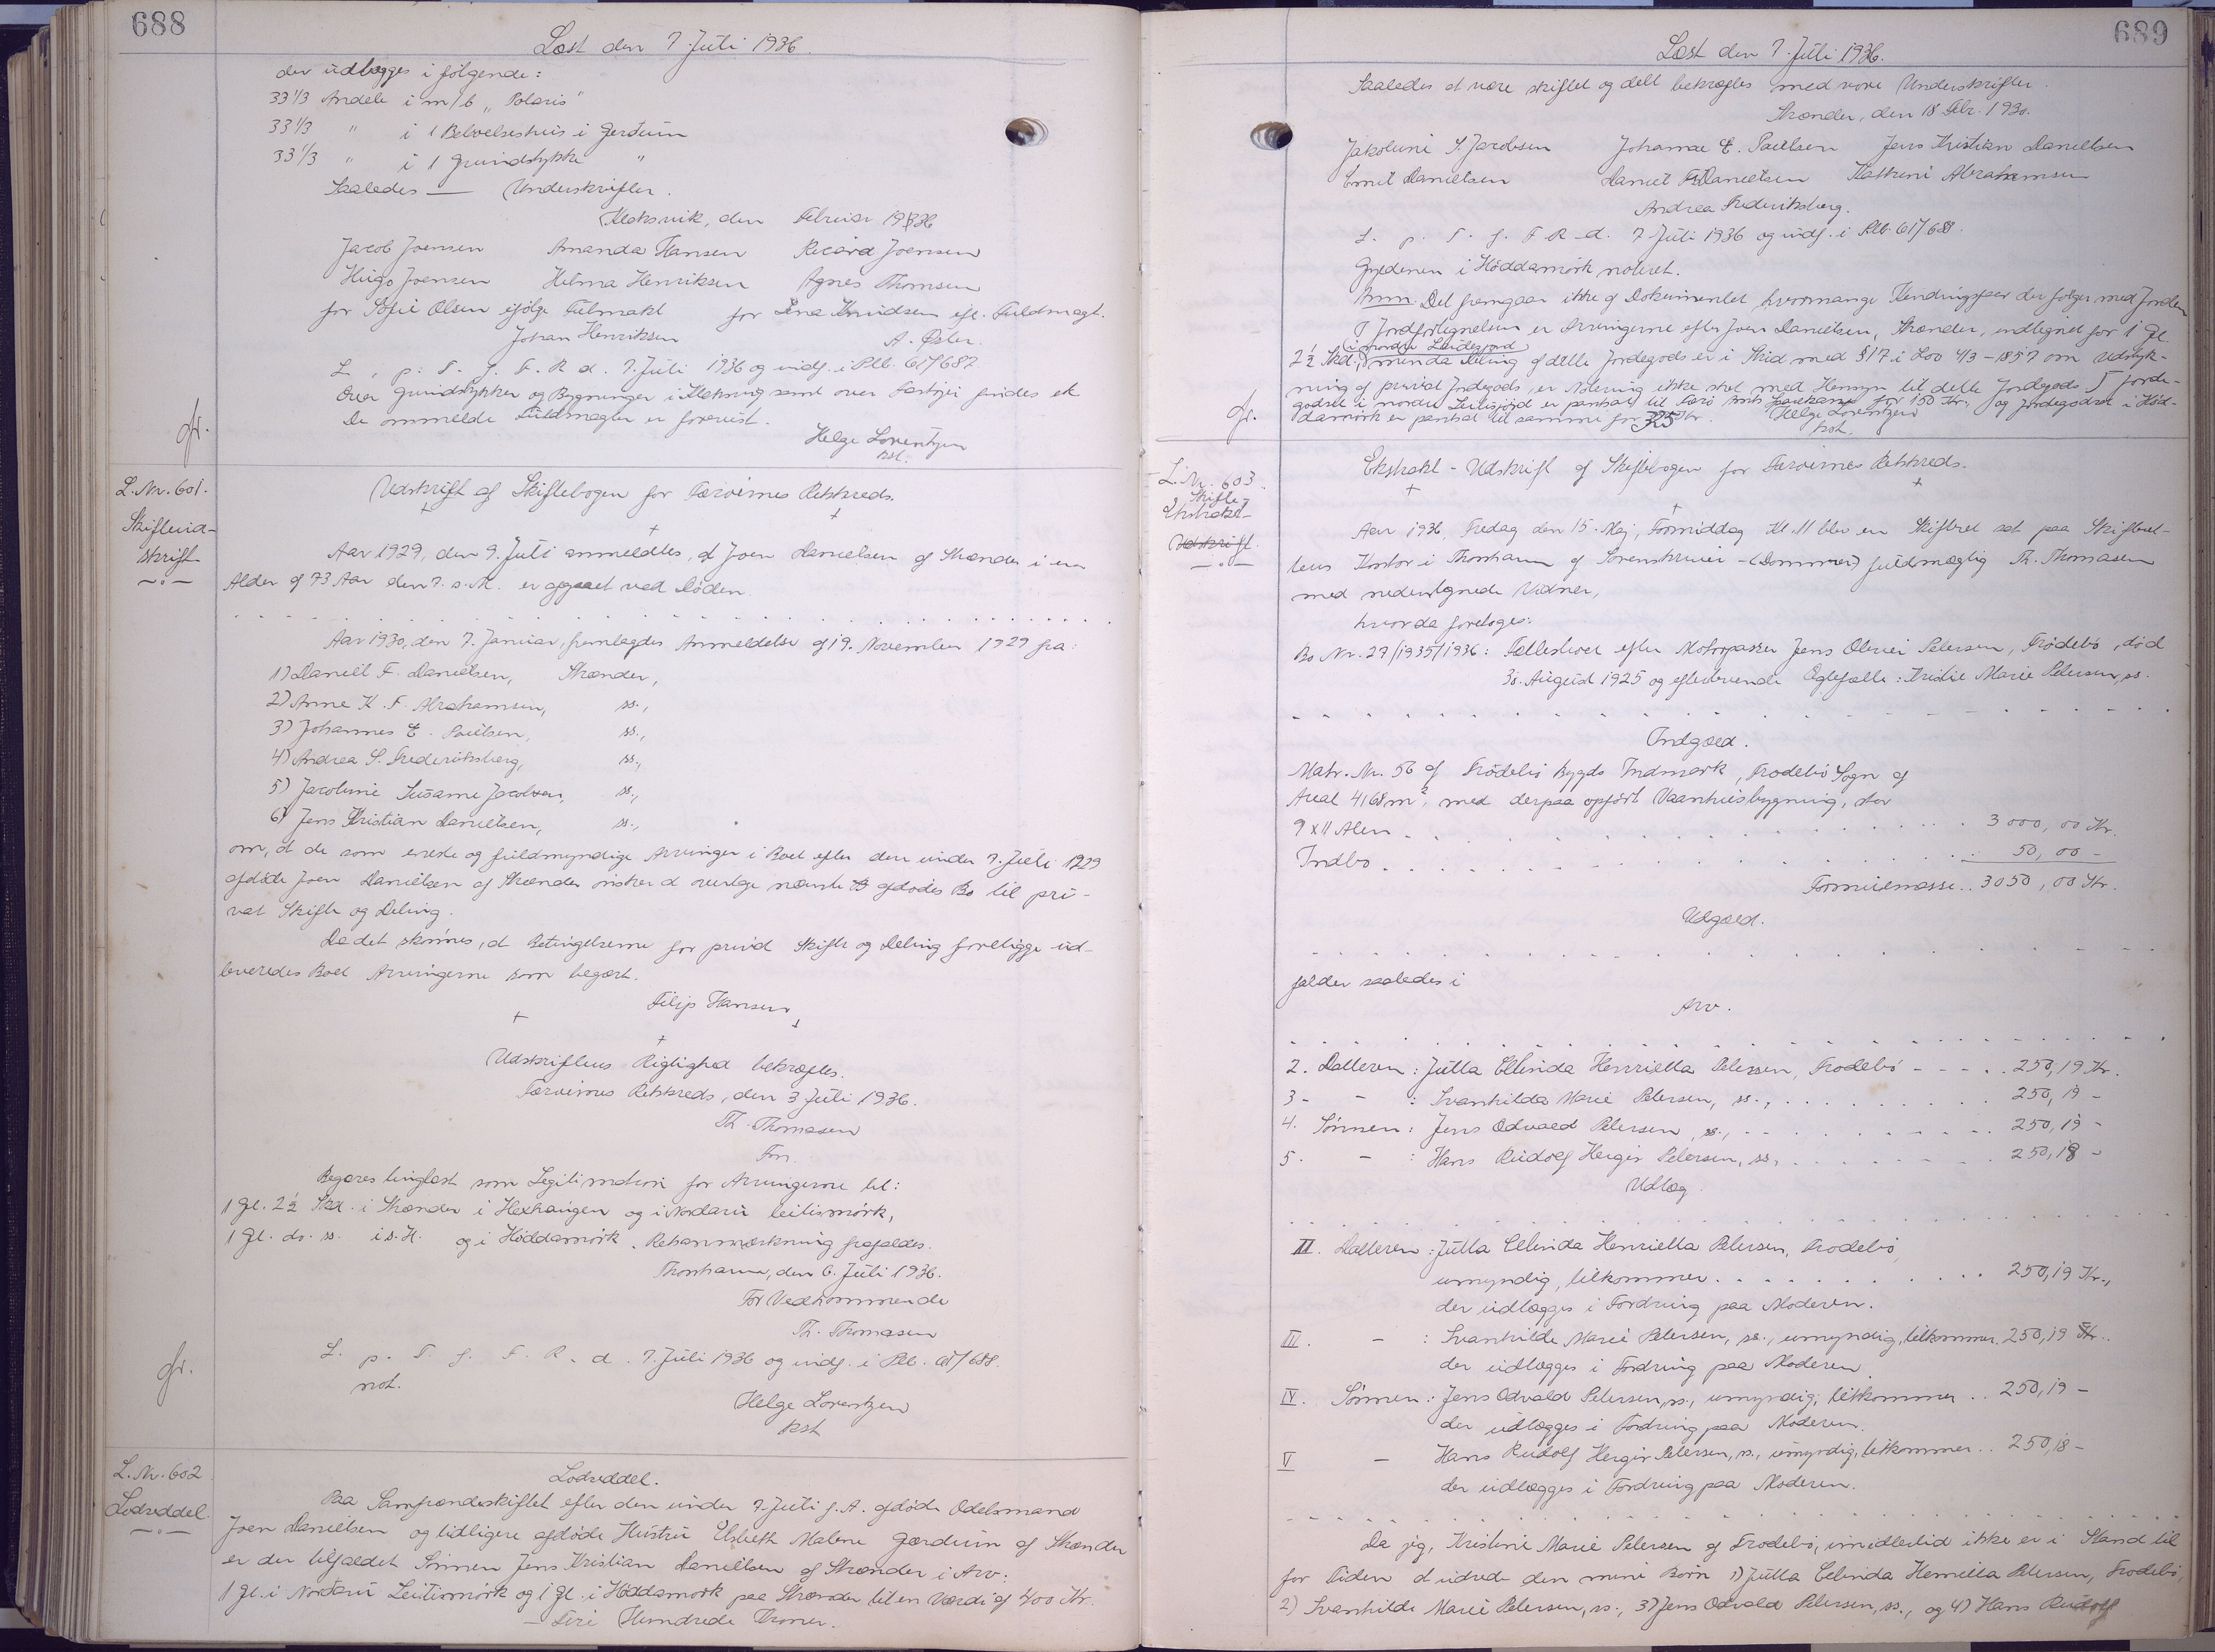 688
Læst den 7. Juli 1936.
der udlægges i følgende:
33 1/3 Andele i m/b „Polaris"
33 1/3 " i 1 Beboelseshus i Gerdum
33 1/3 " i 1 Grundstykke "
Saaledes — Underskrifter.
Kloksvik, den Februar 1936
Jacob Joensen Amanda Hansen Ricard Joensen
Hugo Joensen Helma Henriksen Agnes Thomsen
for Sofie Olsen ifølge Fulmakt for Lena Knudsen efl. Fuldmagt.
Johan Henriksen A. Øster.
L. p. T. f. F. R. d. 7. Juli 1936 og indf. i Plb. 61/687
Over Grundstykker og Bygninger i Kloksvig samt over Fartøjer findes ek
De ommeldte Fuldmagter er forevist.
Helge Lorentzen
kst.
gr.
L. Nr. 601.
Skifteud-
skrift
Udskrift af Skiftebogen for Færøernes Retskreds.
Aar 1929, den 9. Juli anmeldtes, at Joen Danielsen af Skænder i en
Alder af 73 Aar den 7. s. M. er afgaaet ved Døden.
Aar 1930, den 7. Januar, fremlagdes Anmeldelse af 19. November 1929 fra:
1) Daniel F. Danielsen, Skænder,
2) Anne K. F. Abrahamsen, ss.,
3) Johannes E. Poulsen, ss.,
4) Andrea S. Frederiksberg, ss.,
5) Jacobine Susanne Jacobsen, ss.,
6) Jens Kristian Danielsen, ss.,
om, at de som eneste og fuldmyndige Arvinger i Boet efter den under 7. Juli 1929
afdøde Joen Danielsen af Skænder ønsker at overtage nævnte afdødes Bo til pri-
vat Skifte og Deling.
Da det skønnes, at Betingelserne for privat Skifte og Deling foreligge ud-
leveredes Boet Arvingerne som begært.
Filip Hansen
Udskriftens Rigtighed bekræftes.
Færøernes Retskreds, den 3 Juli 1936.
Th. Thomasen
Fm.
Begæres tinglæst som Legitimation for Arvingerne til:
1 Gl. 2½ Skd. i Skænder i Hexhaugen og i Nordaru Leitismørk,
1 Gl. do. ss. i s. H. og i Høddamørk. Rethanmærkning frafaldes.
Thorshavn, den 6. Juli 1936.
For Vedkommende
Th. Thomasen
L. p. T. f. F. R. d. 7. Juli 1936 og indf. i Plb. 61/688.
not.
Helge Lorentzen
kst
gr.
L. Nr. 602
Lodseddel.
Lodseddel.
Paa Samfrændeskiftet efter den under 7. Juli f. A. afdøde Odelsmand
Joen Danielsen og tidligere afdøde Hustru Elsbeth Malene Gærdum af Skænder
er der tilfaldet Sønnen Jens Kristian Danielsen af Skænder i Arv:
1 Gl. i Nordaru Leitismørk og 1 Gl. i Høddamørk paa Skænder til en Værdi af 400 Kr.
— Fire Hundrede Kroner.
689
Læst den 7. Juli 1936.
Saaledes at være skiftet og delt bekræftes med vore Underskrifter.
Skænder, den 18 Febr. 1930.
Jakobine S. Jacobsen Johannes E. Poulsen Jens Kristian Danielsen
Emil Danielsen Daniel F. Danielsen Kathrine Abrahamsen
Andrea Frederiksberg.
L. p. T. f. F. R. d. 7 Juli 1936 og indf. i Plb. 61/688.
Gyldenen i Høddamørk noteret.
Anm. Det fremgaar ikke af Dokumentet hvormange Hundingsfaar der følger med Jorden
I Jordfortegnelsen er Arvingerne efter Joen Danielsen, Skænder, indtegnet for 1 Gl.
2½ Skd. i nordre Leidesjord
Deling af dette Jordegods er i Strid med §17 i Lov 4/3 - 1857 om Udstyk-
ning af privat Jordegods, er Notering ikke sket med Hensyn til dette Jordegods. Jorde-
godset i nordre Leitisjørd er pantsat til Færø Amts Sparekasse for 150 Kr., og Jordegodset i Hød-
damørk er pantsat til samme for 325 Kr. Helge Lorentzen
kst.
gr.
L. Nr. 603
Skifte
Ekstrakt-
Udskrift.
Ekstrakt - Udskrift af Skiftebogen for Færøernes Retskreds.
Aar 1936, Fredag den 15. Maj, Formiddag Kl. 11 blev en Skifteret sat paa Skifteret-
tens Kontor i Thorshavn af Sorenskriver - (Dommer) fuldmægtig Th. Thomasen
med nedentegnede Vidner,
hvorda foretoges:
Bo Nr. 27/1935/1936: Fællesboet efter Motorpasser Jens Oliver Petersen, Frodebø, død
30. August 1925 og efterlevende Ægtefælle: Kristine Marie Petersen, ss.
Indgæld.
Matr. Nr. 56 af Frødebø Bygds Indmark, Frodebø Sogn af
Areal 4168 m², med derpaa opført Vaaningshusbygning, stor
9 x 11 Alen . . . 3000,00 Kr.
Indbo . . . 50,00 -
Formuemasse . . 3050,00 Kr.
Udgæld.
falder saaledes i
Arv.
2. Datteren: Jutta Elinda Henrietta Petersen, Frodebø - - - . 250,19 Kr.
3- - : Svanhilda Marie Petersen, ss., . . . 250,19 -
4. Sønnen: Jens Odvald Petersen, ss., - - . . . 250,19 -
5. - : Hans Rudolf Heigir Petersen, ss., . . . 250,18 -
Udlæg
II. Datteren: Jutta Elinda Henrietta Petersen, Frodebø,
umyndig, tilkommer . . . 250,19 Kr.,
der udlægges i Fordring paa Moderen.
III. - : Svanhilde Marie Petersen, ss., umyndig, tilkommer. 250,19 Kr..
der udlægges i Fordring paa Moderen
IV. Sønnen: Jens Odvald Petersen, ss., umyndig, tilkommer . . 250,19 -
der udlægges i Fordring paa Moderen.
V - Hans Rudolf Heigir Petersen, ss., umyndig, tilkommer . . 250,18 -
der udlægges i Fordring paa Moderen.
Da jeg, Kristine Marie Petersen af Frodebø, imidlertid ikke er i Stand til
for Tiden at udrede den mine Børn 1) Jutta Elinda Henrietta Petersen, Frodebø,
2) Svanhilde Marie Petersen, ss., 3) Jens Odvald Petersen, ss., og 4) Hans Rudolf